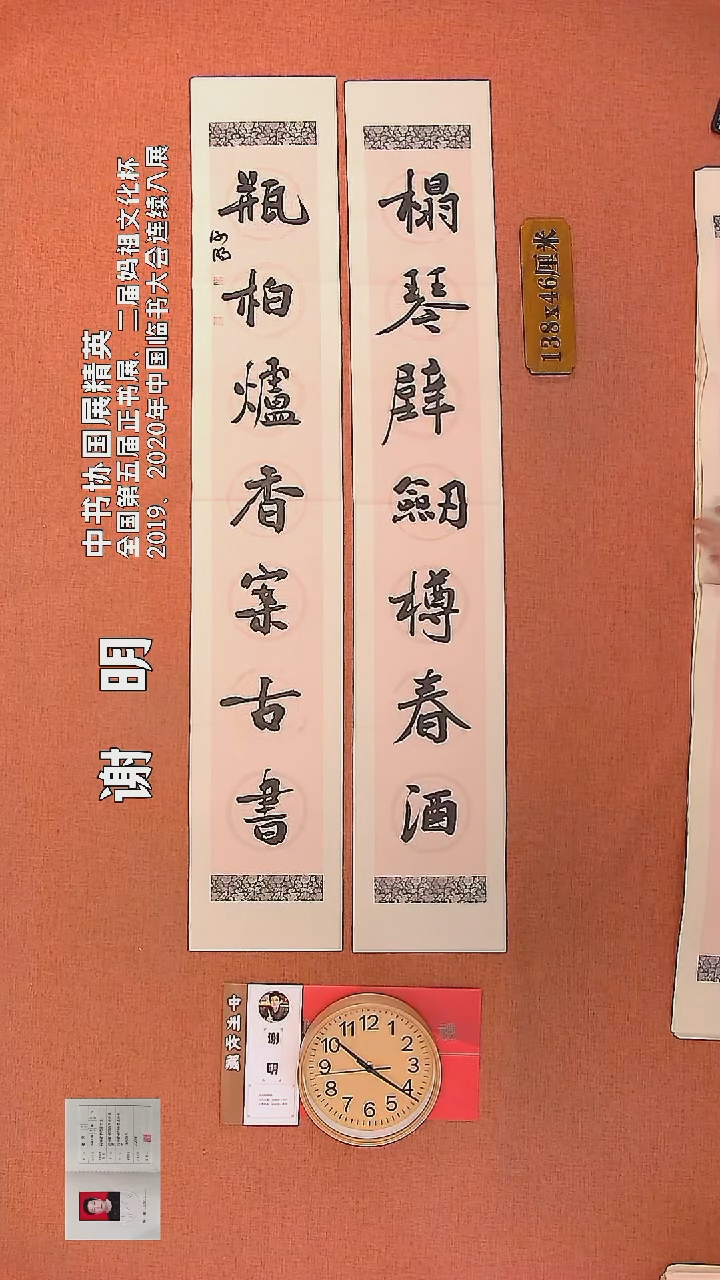 榻琴壁劒樽春酒
瓶柏爐香案古書
谢明
中书协国展精英
全国第五届正书展、二届妈祖文化杯
2019、2020年中国临书大会连续入展
138x46厘米
谢明
12
1
2
3
4
5
6
7
8
9
10
11